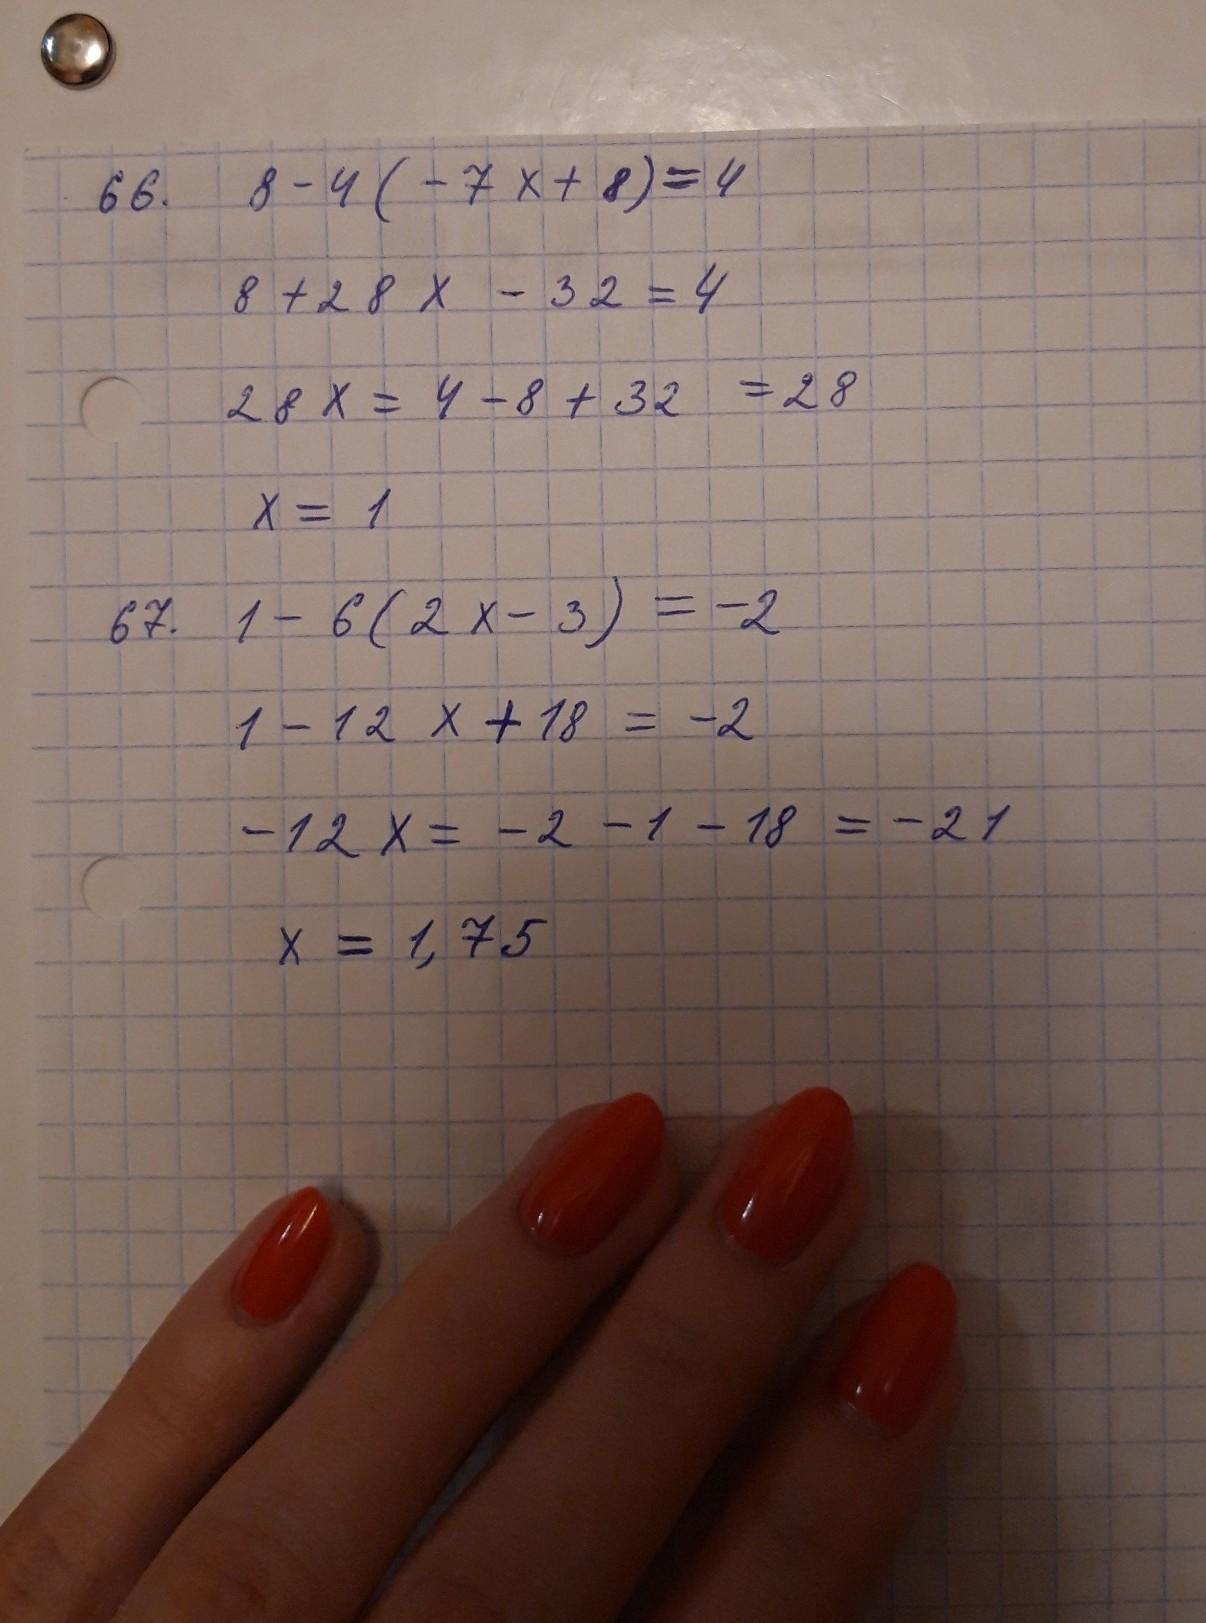 66. 8 - 4 ( - 7 x + 8 ) = 4
8 + 28 x - 32 = 4
28 x = 4 - 8 + 32 = 28
x = 1
67. 1 - 6 ( 2 x - 3 ) = -2
1 - 12 x + 18 = -2
-12 x = -2 - 1 - 18 = -21
x = 1,75